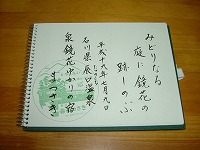 みどりなる
庭に鏡花の
跡しのぶ
平成十九年七月九日
石川県辰口温泉
泉鏡花ゆかりの宿
まつさき